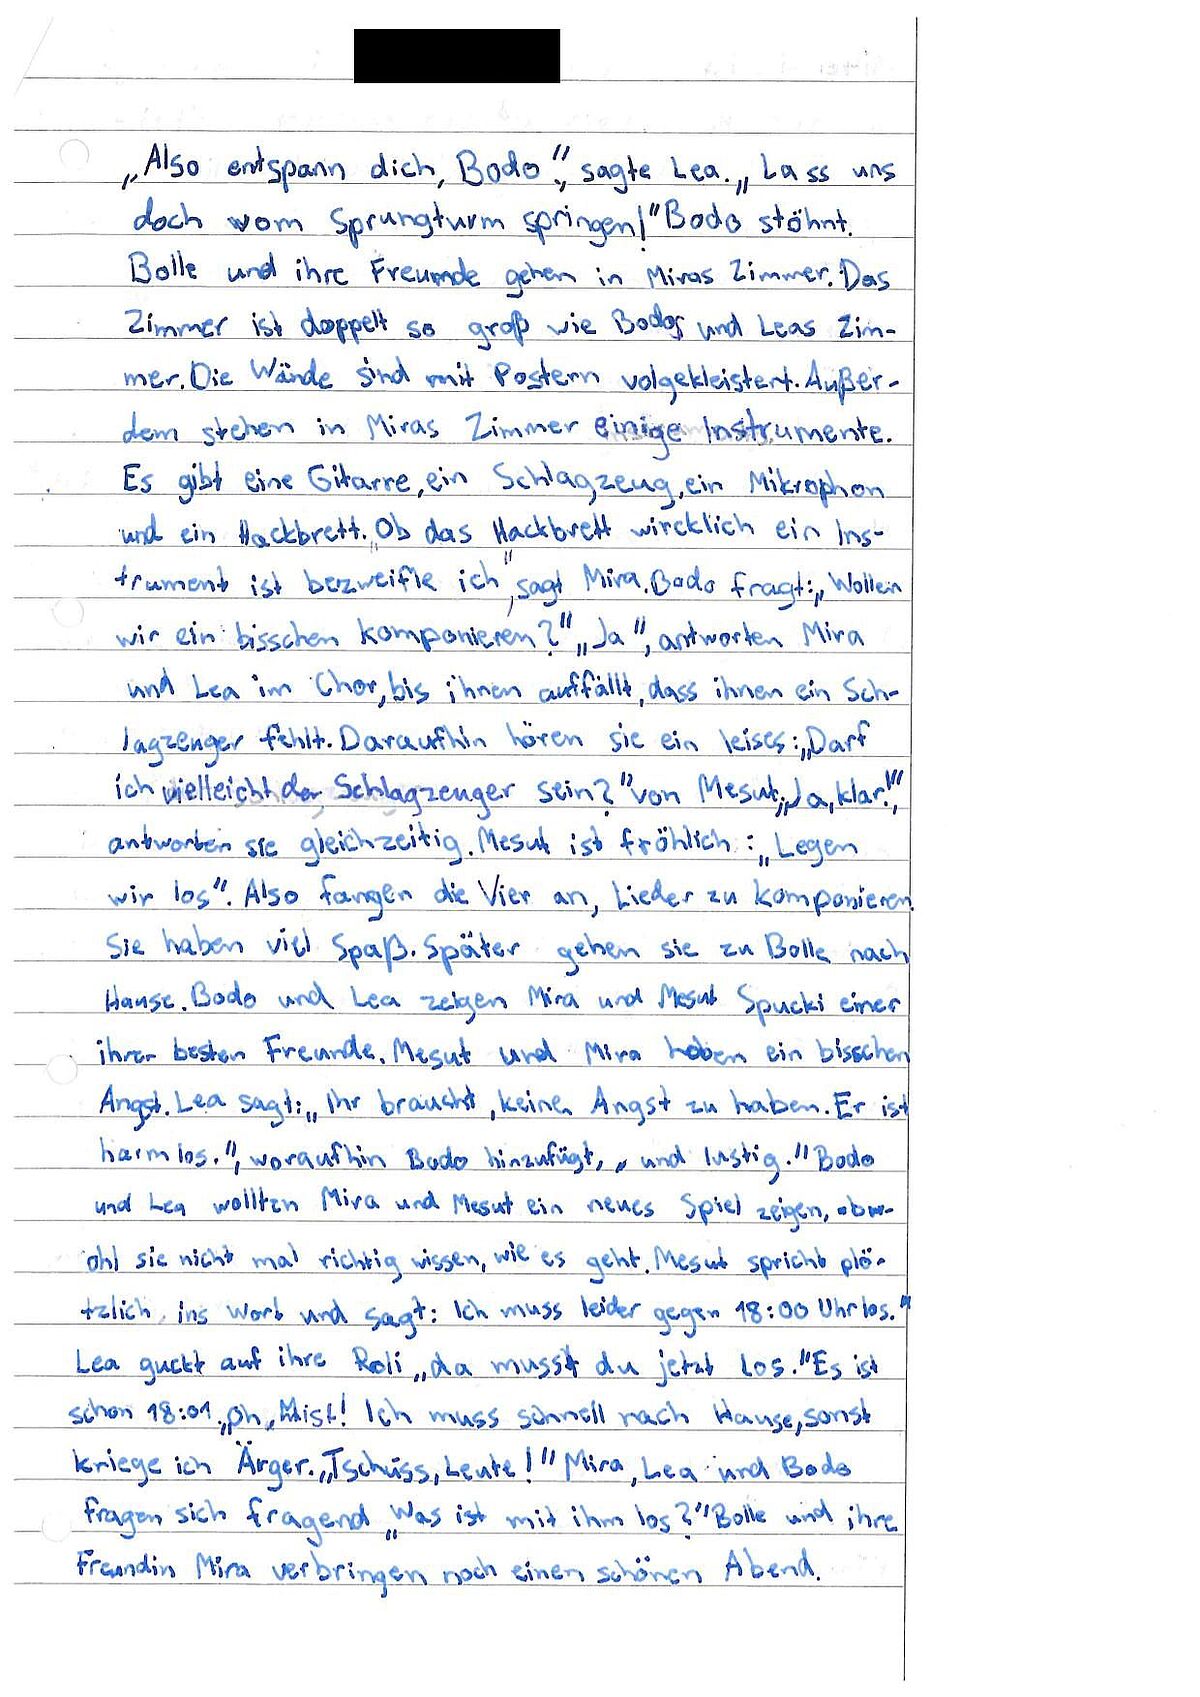 „Also entspann dich, Bodo!", sagte Lea. „Lass uns
doch vom Sprungturm springen!" Bodo stöhnt.
Bolle und ihre Freunde gehen in Miras Zimmer. Das
Zimmer ist doppelt so groß wie Bodos und Leas Zim-
mer. Die Wände sind mit Postern volgekleistert. Außer-
dem stehen in Miras Zimmer einige Instrumente.
Es gibt eine Gitarre, ein Schlagzeug, ein Mikrophon
und ein Hackbrett. „Ob das Hackbrett wircklich ein Ins-
trument ist bezweifle ich", sagt Mira. Bodo fragt: „Wollen
wir ein bisschen komponieren?" „Ja", antworten Mira
und Lea im Chor, bis ihnen auffällt, dass ihnen ein Sch-
lagzeuger fehlt. Daraufhin hören sie ein leises: „Darf
ich vielleicht der Schlagzeuger sein?" von Mesut. „Ja, klar!",
antworten sie gleichzeitig. Mesut ist fröhlich: „Legen
wir los". Also fangen die Vier an, Lieder zu komponieren.
Sie haben viel Spaß. Später gehen sie zu Bolle nach
Hause. Bodo und Lea zeigen Mira und Mesut Spucki einer
ihrer besten Freunde. Mesut und Mira haben ein bisschen
Angst. Lea sagt: „Ihr braucht, keine Angst zu haben. Er ist
harmlos.", woraufhin Bodo hinzufügt, „und lustig." Bodo
und Lea wollten Mira und Mesut ein neues Spiel zeigen, obw-
ohl sie nicht mal richtig wissen, wie es geht. Mesut spricht plö-
tzlich ins Wort und sagt: Ich muss leider gegen 18:00 Uhr los."
Lea guckt auf ihre Roli „da musst du jetzt los." Es ist
schon 18:01. „Oh „Mist! Ich muss schnell nach Hause, sonst
kriege ich Ärger. „Tschüss, Leute!" Mira, Lea und Bodo
fragen sich fragend „Was ist mit ihm los?" Bolle und ihre
Freundin Mira verbringen noch einen schönen Abend.